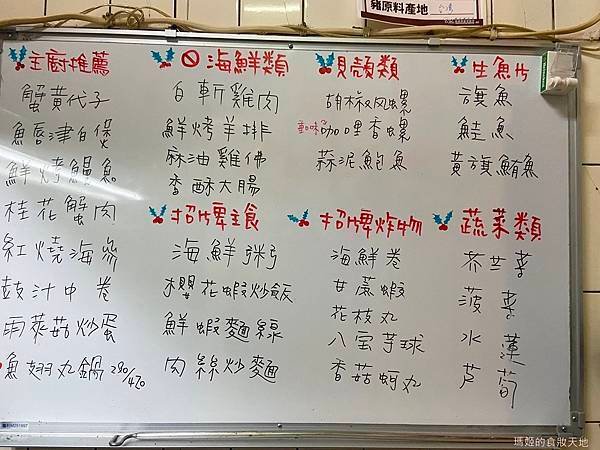 豬原料產地 台灣
主廚推薦
蟹黃代子
魚唇津白煲
鮮烤鰻魚
桂花蟹肉
紅燒海參
豉汁中卷
雨蒸菇炒蛋
魚翅丸鍋 290/470
🚫海鮮類
白斬雞肉
鮮烤羊排
麻油雞佛
香酥大腸
招牌主食
海鮮粥
櫻花蝦炒飯
鮮蝦麵線
肉絲炒麵
貝殼類
胡椒风螺
咖哩香螺
蒜泥鮑魚
招牌炸物
海鮮卷
甘蔗蝦
花枝丸
八宝芋球
香菇蚵丸
生魚片
旗魚
鮭魚
黃旗鮪魚
蔬菜類
芥兰菜
菠菜
水蓮
芦筍
瑪姬的食妝天地